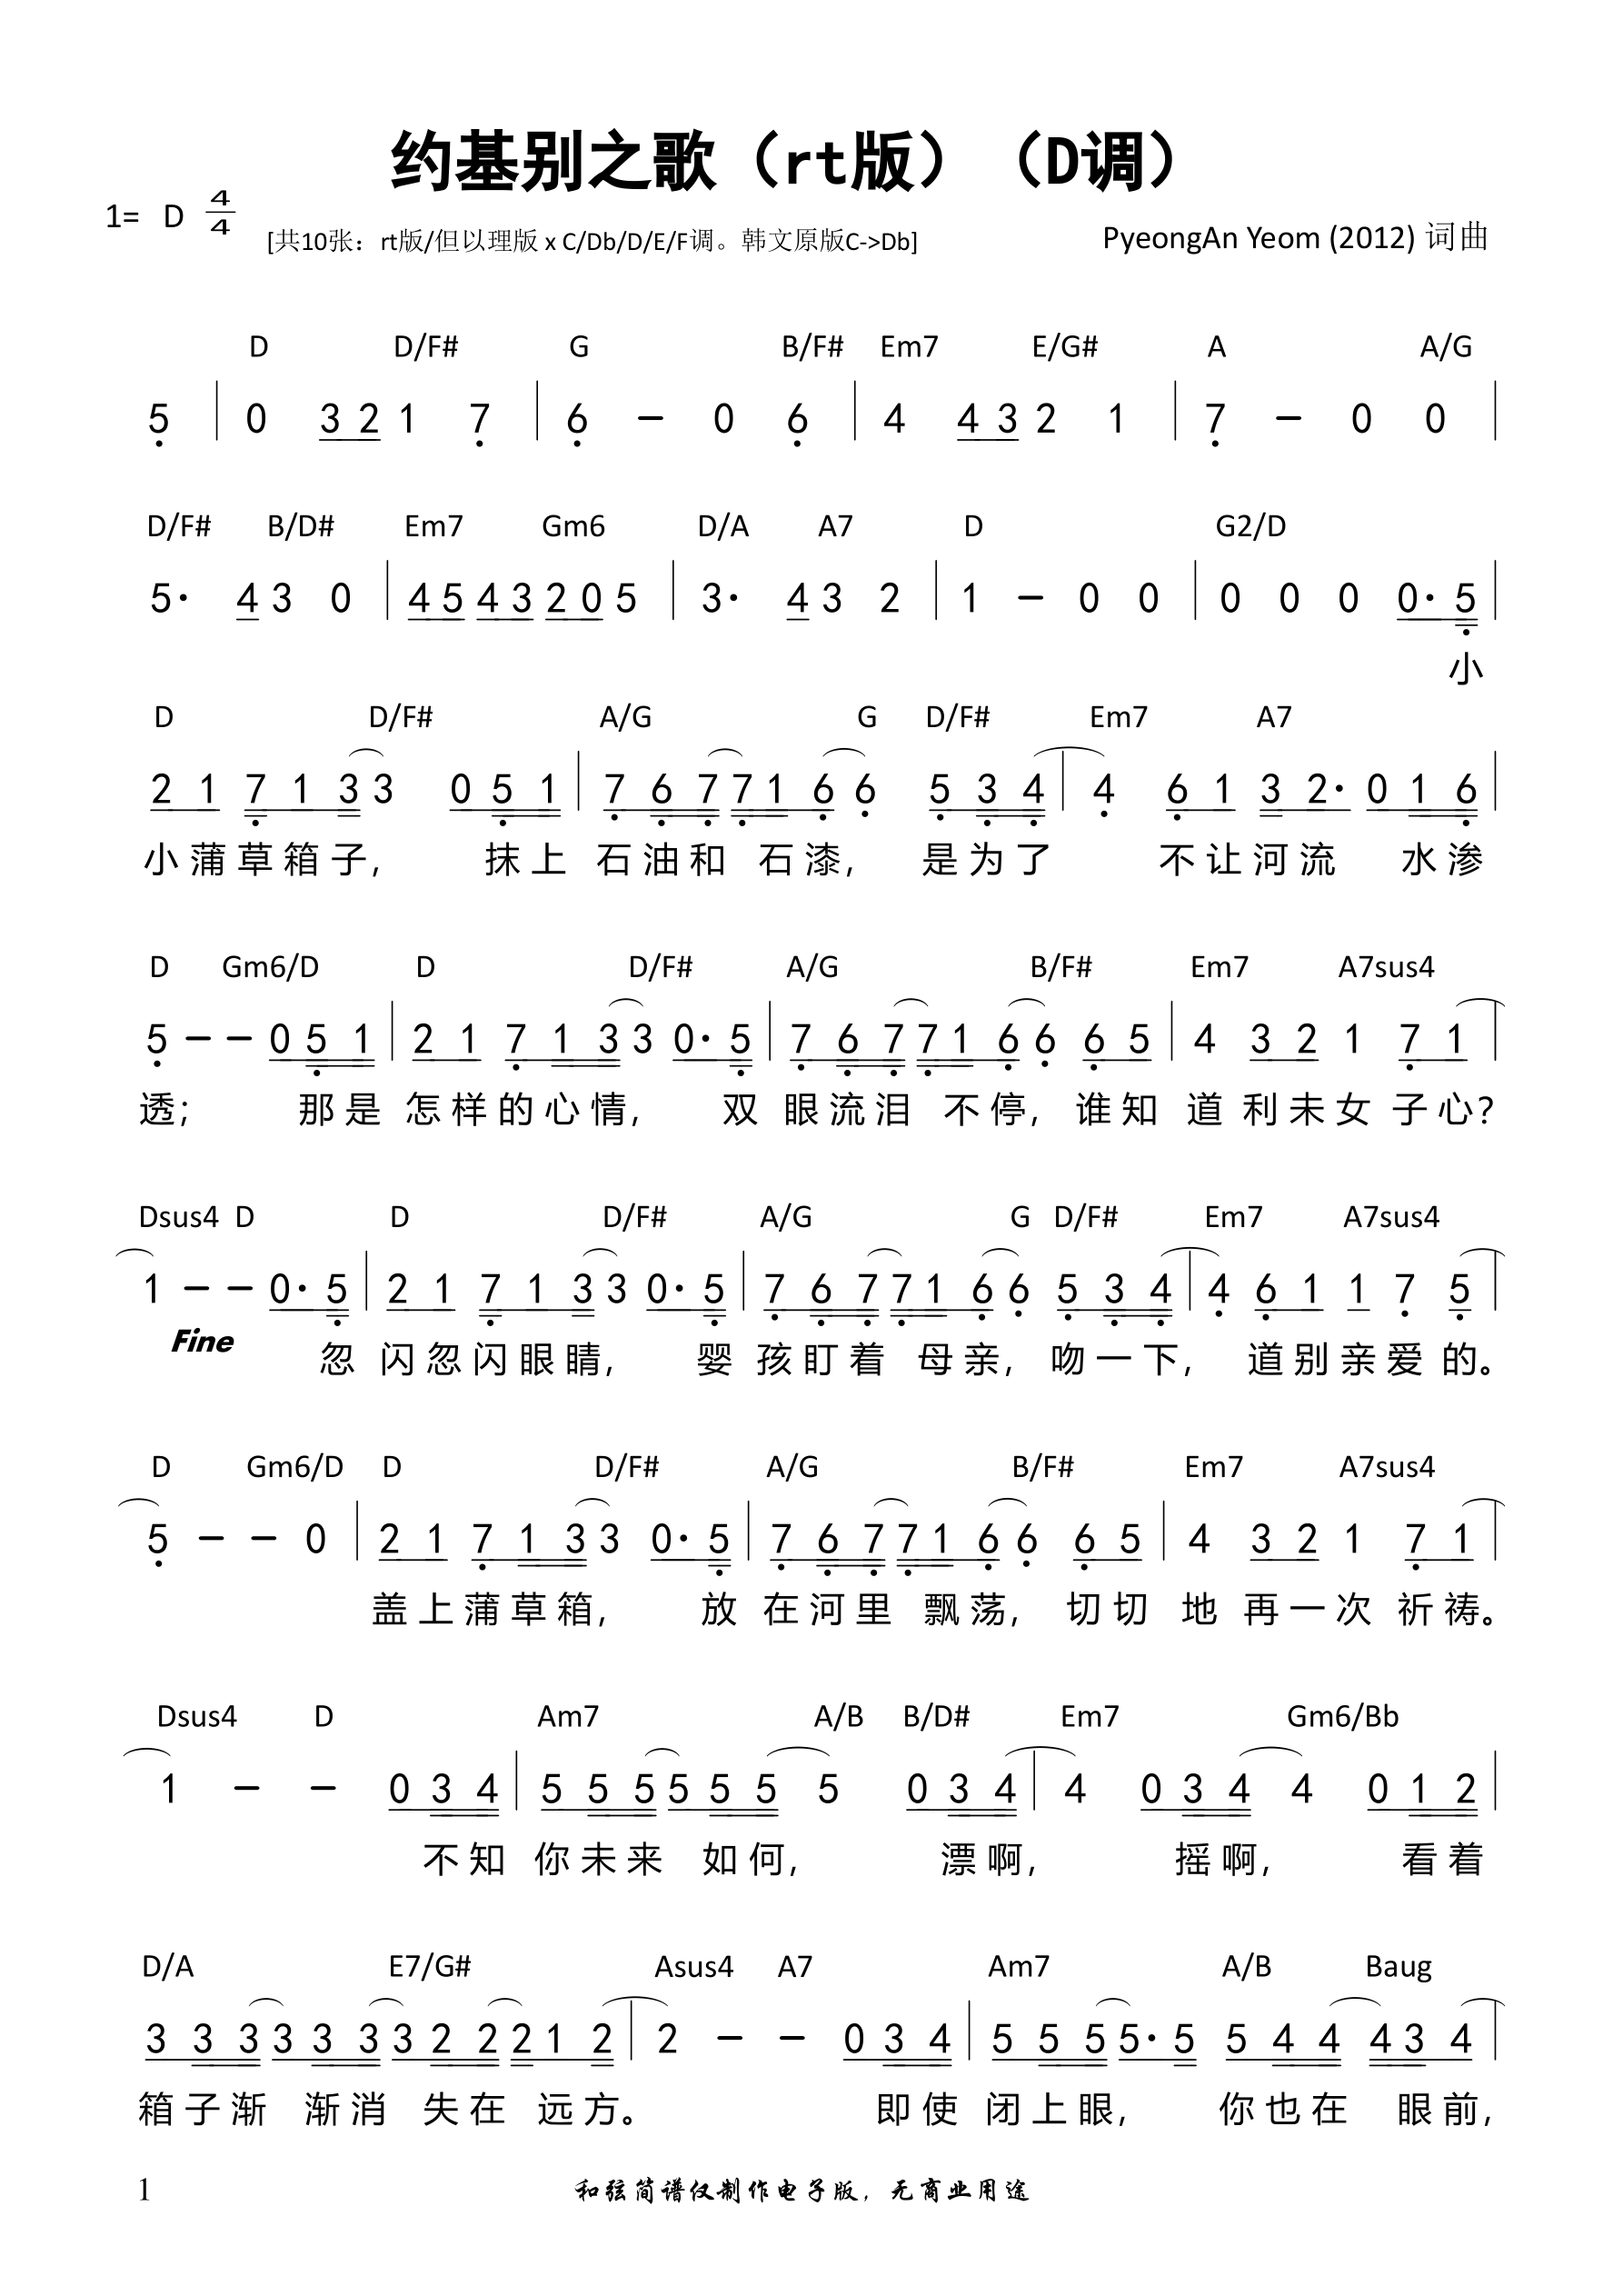 约基别之歌（rt版）（D调）
1= D 4/4
[共10张：rt版/但以理版 x C/Db/D/E/F调。韩文原版C->Db]
PyeongAn Yeom (2012) 词曲
D D/F# G B/F# Em7 E/G# A A/G
5 | 0 3 2 1 7 | 6 – 0 6 | 4 4 3 2 1 | 7 – 0 0 |
D/F# B/D# Em7 Gm6 D/A A7 D G2/D
5· 4 3 0 | 4 5 4 3 2 0 5 | 3· 4 3 2 | 1 – 0 0 | 0 0 0 0· 5 |
小
D D/F# A/G G D/F# Em7 A7
2 1 7 1 3 3 0 5 1 | 7 6 7 7 1 6 6 5 3 4 | 4 6 1 3 2· 0 1 6 |
小蒲草箱子, 抹上 石油和 石漆, 是为了 不让河流 水渗
D Gm6/D D D/F# A/G B/F# Em7 A7sus4
5 – – 0 5 1 | 2 1 7 1 3 3 0· 5 | 7 6 7 7 1 6 6 6 5 | 4 3 2 1 7 1 |
透; 那是 怎样的心情, 双 眼流泪 不停, 谁知 道 利未女 子心?
Dsus4 D D D/F# A/G G D/F# Em7 A7sus4
1 – – 0· 5 | 2 1 7 1 3 3 0· 5 | 7 6 7 7 1 6 6 5 3 4 | 4 6 1 1 7 5 |
Fine
忽 闪忽闪眼睛, 婴 孩盯着 母亲, 吻一下, 道别亲爱 的。
D Gm6/D D D/F# A/G B/F# Em7 A7sus4
5 – – 0 | 2 1 7 1 3 3 0· 5 | 7 6 7 7 1 6 6 6 5 | 4 3 2 1 7 1 |
盖上蒲草箱, 放 在河里 飘荡, 切切 地 再一次 祈祷。
Dsus4 D Am7 A/B B/D# Em7 Gm6/Bb
1 – – 0 3 4 | 5 5 5 5 5 5 5 0 3 4 | 4 0 3 4 4 0 1 2 |
不知 你未来 如何, 漂啊, 摇啊, 看着
D/A E7/G# Asus4 A7 Am7 A/B Baug
3 3 3 3 3 3 3 2 2 2 1 2 | 2 – – 0 3 4 | 5 5 5 5· 5 5 4 4 4 3 4 |
箱子渐 渐消 失在 远方。 即使 闭上眼, 你也在 眼前,
1
和弦简谱仅制作电子版，无商业用途